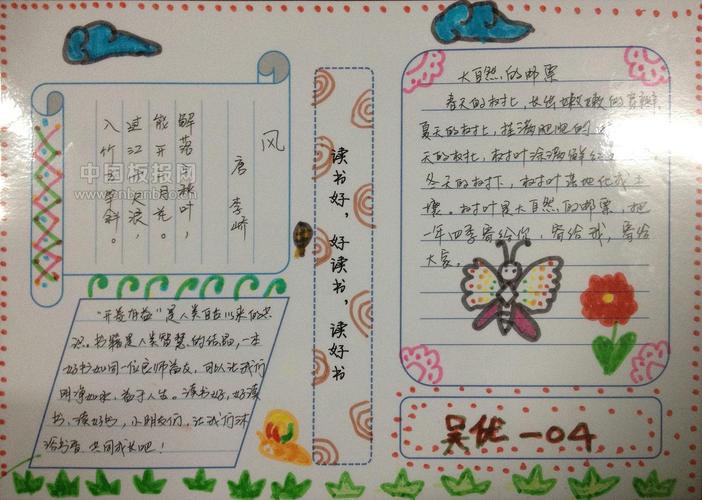 风
唐 李峤
解落三秋叶，
能开二月花。
过江千尺浪
入竹万竿斜。
中国板报网
www.cnbanbao.cn
"开卷有益"是人类自古以来的共
识。书籍是人类智慧的结晶，一本
好书如同一位良师益友，可以让我们
明净如水，益于人生。读书好，好读
书，读好书，小朋友们，让我们沐
浴书香，共同成长吧！
读书好，好读书，读好书
大自然的邮票
春天的树叶，长出嫩嫩的
夏天的树叶，挂满肥肥的
天的树叶，树叶涂满鲜
冬天的树下，树叶落地化成土
壤。树叶是大自然的邮票，把
一年四季寄给你，寄给我，寄给
大家。
吴优一04